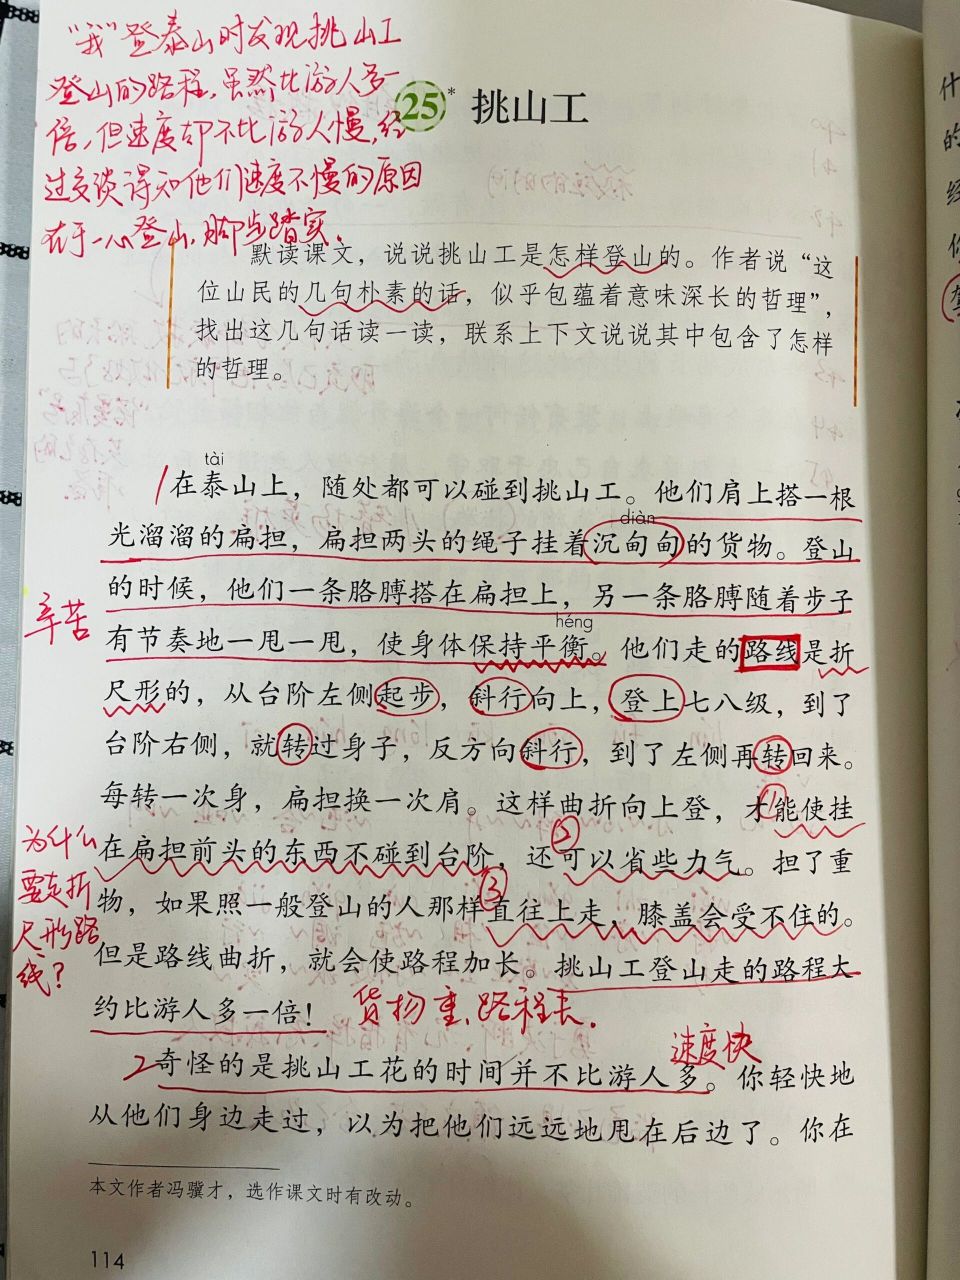 “我”登泰山时发现挑山工
登山的路程，虽然比游人多一
倍，但速度却不比游人慢，经
过交谈得知他们速度不慢的原因
在于一心登山，脚步踏实。
25* 挑山工
默读课文，说说挑山工是怎样登山的。作者说“这
位山民的几句朴素的话，似乎包蕴着意味深长的哲理”，
找出这几句话读一读，联系上下文说说其中包含了怎样
的哲理。
tài
1在泰山上，随处都可以碰到挑山工。他们肩上搭一根
diàn
光溜溜的扁担，扁担两头的绳子挂着沉甸甸的货物。登山
的时候，他们一条胳膊搭在扁担上，另一条胳膊随着步子
辛苦
héng
有节奏地一甩一甩，使身体保持平衡。他们走的路线是折
尺形的，从台阶左侧起步，斜行向上，登上七八级，到了
台阶右侧，就转过身子，反方向斜行，到了左侧再转回来。
每转一次身，扁担换一次肩。这样曲折向上登，才①能使挂
在扁担前头的东西不碰到台阶，还②可以省些力气。担了重
物，如果照一般登山的人那样③直往上走，膝盖会受不住的。
为什么
要走折
尺形路
线？
但是路线曲折，就会使路程加长。挑山工登山走的路程大
约比游人多一倍！
货物重，路程长。
速度快
2奇怪的是挑山工花的时间并不比游人多。你轻快地
从他们身边走过，以为把他们远远地甩在后边了。你在
本文作者冯骥才，选作课文时有改动。
114
什
的
经
你